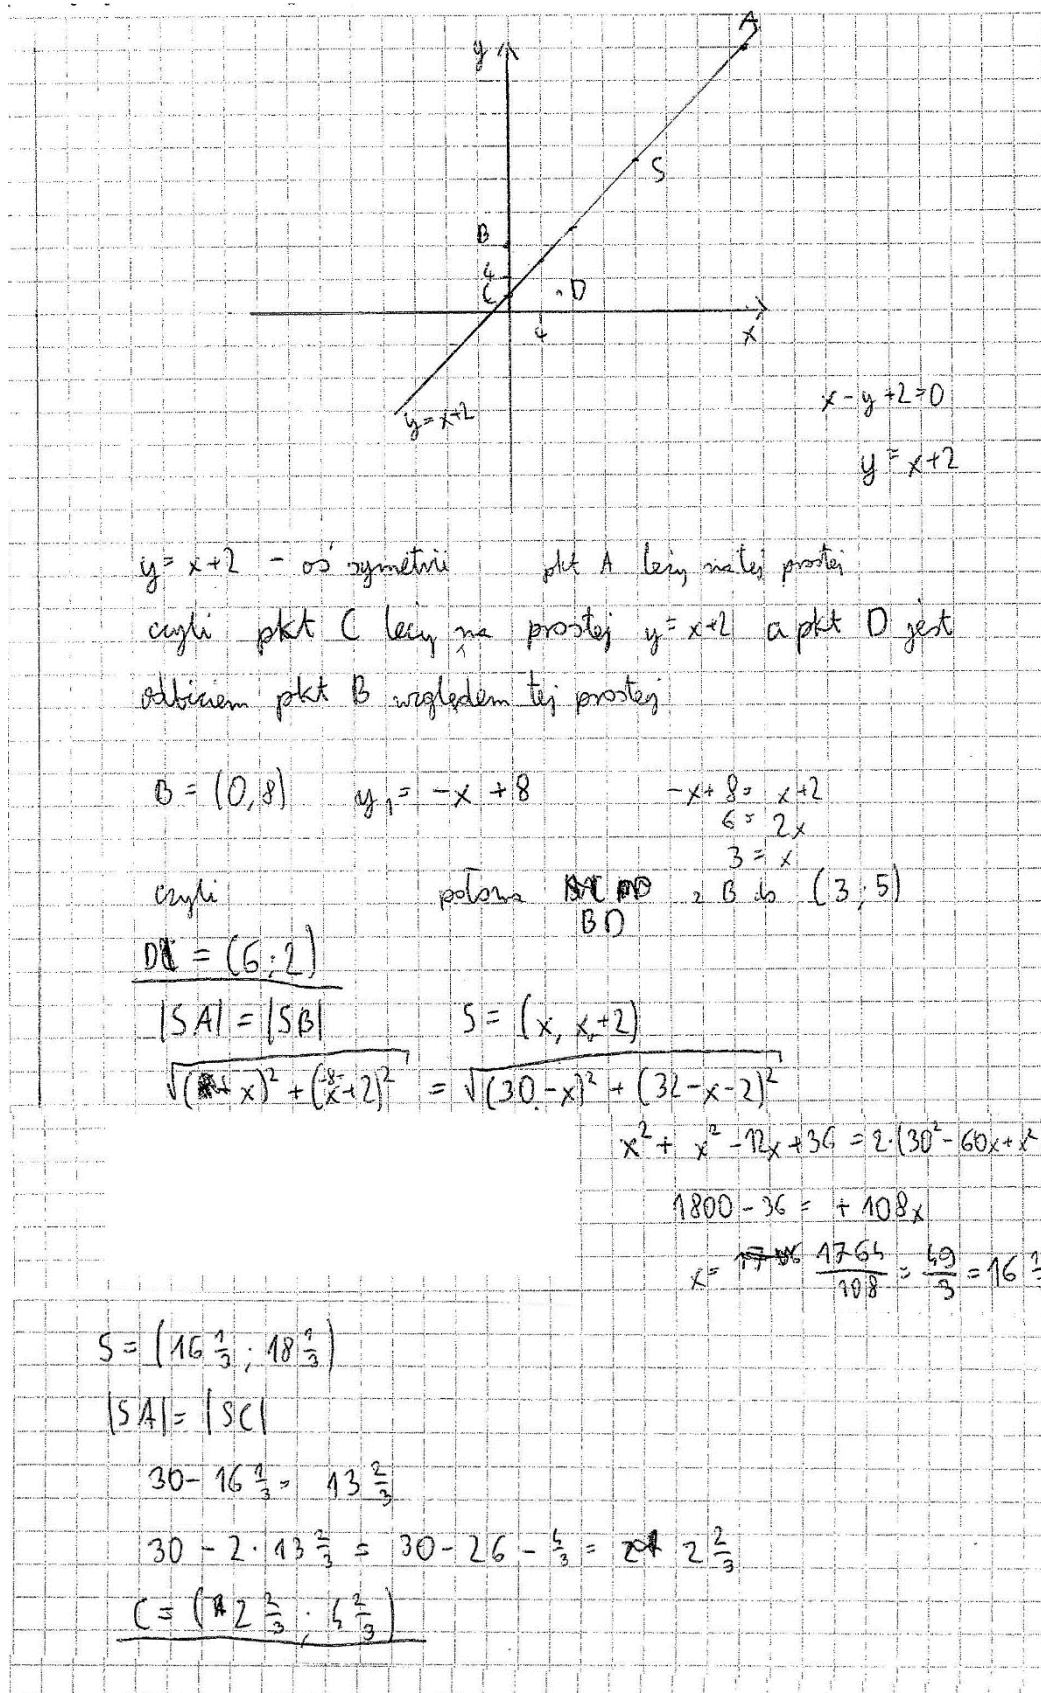 A
y
S
B
4
C
D
4
x
y=x+2
x-y+2=0
y=x+2
y=x+2 - oś symetrii pkt A leży na tej prostej
czyli pkt C leży na prostej y=x+2 a pkt D jest
odbiciem pkt B względem tej prostej
B=(0,8) y₁=-x+8 -x+8=x+2
6=2x
3=x
czyli połowa z B do (3;5)
BD
D=(6;2)
|SA|=|SB| S=(x, x+2)
√(x)²+(-8+x+2)² = √(30-x)²+(32-x-2)²
x²+x²-12x+36=2·(30²-60x+x²
1800-36=+108x
x= 1764/108 = 49/3 = 16
S=(16 1/3; 18 1/3)
|SA|=|SC|
30-16 1/3= 13 2/3
30-2·13 2/3 = 30-26-4/3= 2 2/3
C=(2 2/3; 4 2/3)